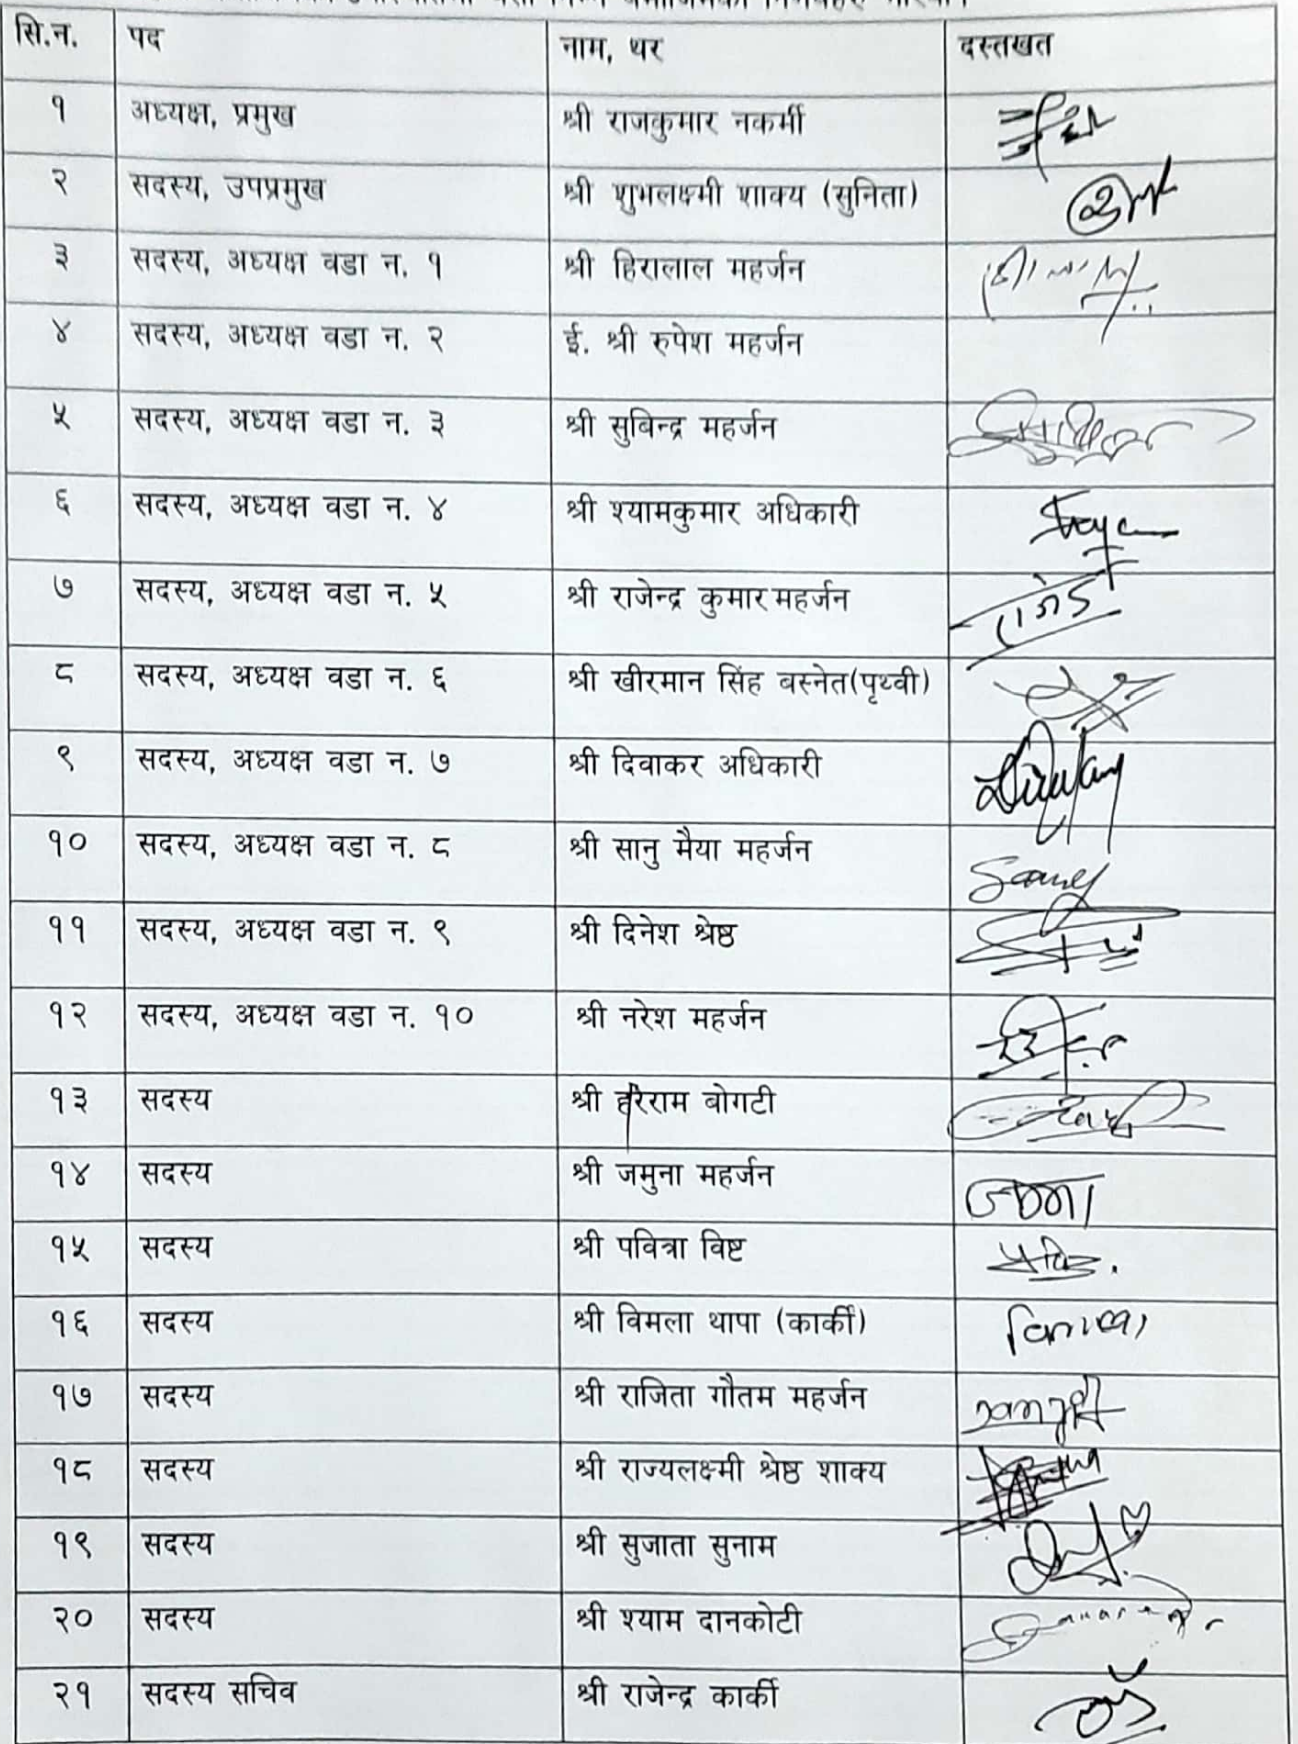 सि.न. पद नाम, थर दस्तखत
१ अध्यक्ष, प्रमुख श्री राजकुमार नकर्मी
२ सदस्य, उपप्रमुख श्री शुभलक्ष्मी शाक्य (सुनिता)
३ सदस्य, अध्यक्ष वडा न. १ श्री हिरालाल महर्जन
४ सदस्य, अध्यक्ष वडा न. २ ई. श्री रुपेश महर्जन
५ सदस्य, अध्यक्ष वडा न. ३ श्री सुबिन्द्र महर्जन
६ सदस्य, अध्यक्ष वडा न. ४ श्री श्यामकुमार अधिकारी
७ सदस्य, अध्यक्ष वडा न. ५ श्री राजेन्द्र कुमार महर्जन
८ सदस्य, अध्यक्ष वडा न. ६ श्री खीरमान सिंह बस्नेत(पृथ्वी)
९ सदस्य, अध्यक्ष वडा न. ७ श्री दिवाकर अधिकारी
१० सदस्य, अध्यक्ष वडा न. ८ श्री सानु मैया महर्जन
११ सदस्य, अध्यक्ष वडा न. ९ श्री दिनेश श्रेष्ठ
१२ सदस्य, अध्यक्ष वडा न. १० श्री नरेश महर्जन
१३ सदस्य श्री हरेराम बोगटी
१४ सदस्य श्री जमुना महर्जन
१५ सदस्य श्री पवित्रा विष्ट
१६ सदस्य श्री विमला थापा (कार्की)
१७ सदस्य श्री राजिता गौतम महर्जन
१८ सदस्य श्री राज्यलक्ष्मी श्रेष्ठ शाक्य
१९ सदस्य श्री सुजाता सुनाम
२० सदस्य श्री श्याम दानकोटी
२१ सदस्य सचिव श्री राजेन्द्र कार्की